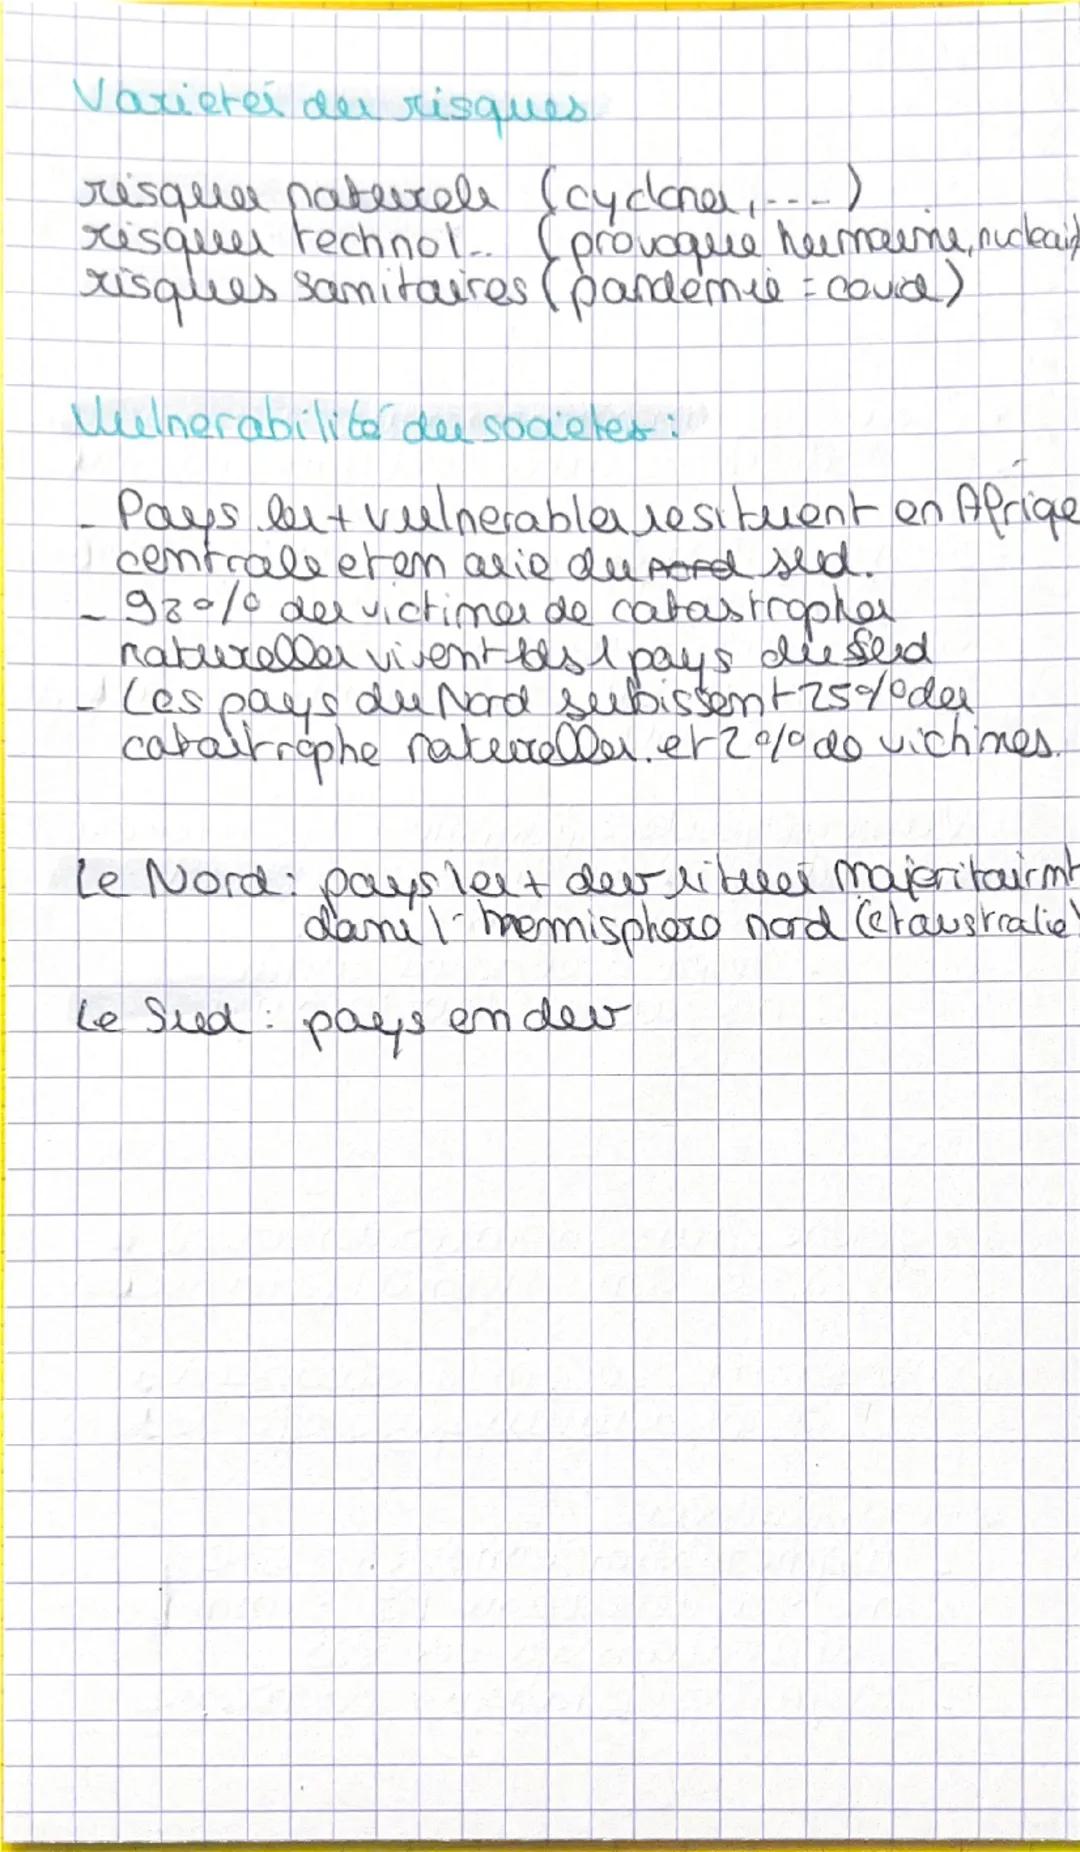 Varietés des risques
risques naturels (cyclones, ---)
risques technol.. (provoque humaine, nucleair)
risques sanitaires (pandémie = covid)
Vulnerabilité des societes :
- Pays les + vulnerables se situent en Afriqe
centrale et en asie du nord sud.
- 98% des victimes de catastrophes
naturelles vivent ds l pays du Sud
- Les pays du Nord subissent 25% des
catastrophe naturelles. et 2% de victimes.
Le Nord : pays les + dev situés majoritairmt
dans l'hemisphere nord (et australie)
Le Sud : pays en dev